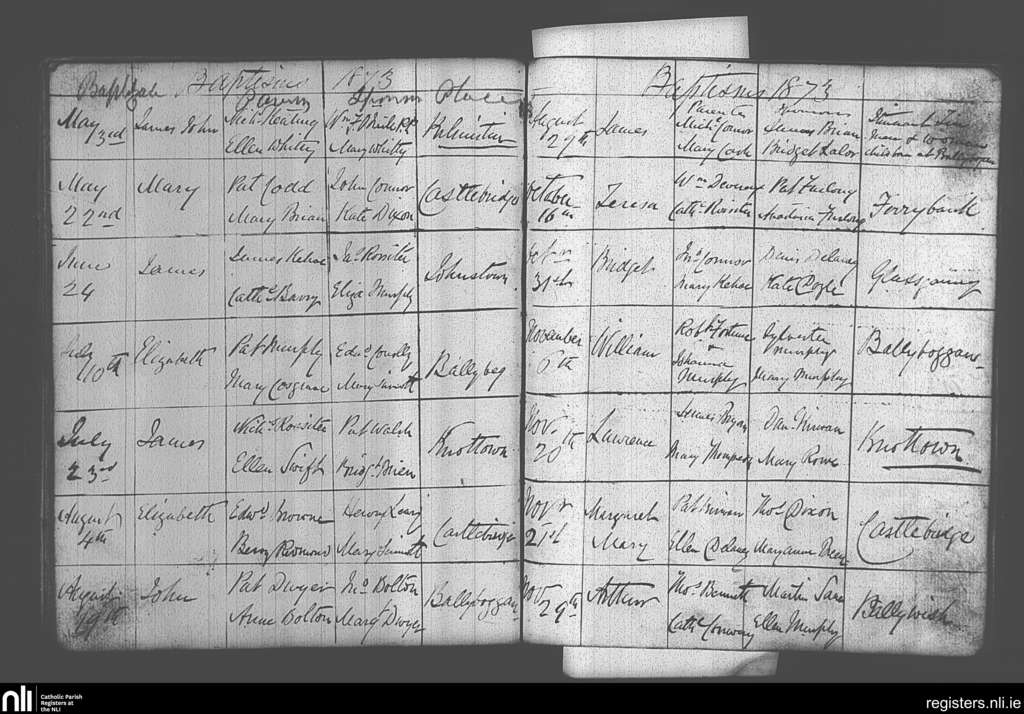 Baptisms 1873
Parents Sponsors Place
May 3rd James John Mich. Keating Ellen Whitty Mary Whitty Kilmistin
May 22nd Mary Pat Codd Mary Brian John Connor Kate Dixon Castlebridge
June 24 James James Kehoe Cathe Barry Jas Rossiter Eliza Murphy Johnstown
July 10th Elizabeth Pat Murphy Mary Cosgrave Edwd Connolly Mary Sinnott Ballybeg
July 23rd James Nichs Rossiter Ellen Swift Pat Walsh Bridgt Brien Knottown
August 4th Elizabeth Edwd Browne Betsy Redmond Henry Leary Mary Sinnott Castlebridge
August 19th John Pat Dwyer Anne Bolton Jno Bolton Margt Dwyer Ballyboggan
Baptisms 1873
Parents Sponsors
August 29th James Mich Connor Mary Cash James Brian Bridget Lalor
children at
October 16th Teresa Wm Devereux Cathe Rossiter Pat Furlong Anastasia Furlong Ferrybank
Oct 31st Bridget Jno Connor Mary Kehoe Denis Delaney Kate Doyle
November 6th William Robt Fortune & Johanna Murphy Sylvester Murphy Mary Murphy Ballyboggan
Nov. 20th Lawrence James Ryan Mary Thompson Dan. Kirwan Mary Rowe Knottown
Novr 21st Margaret Mary Pat Kirwan Ellen Delaney Thos Dixon Mary Anne Castlebridge
Nov. 29th Arthur Thos Bennett Cathe Conway Martin Ellen Murphy Ballywish
nli
Catholic Parish
Registers at
the NLI
registers.nli.ie